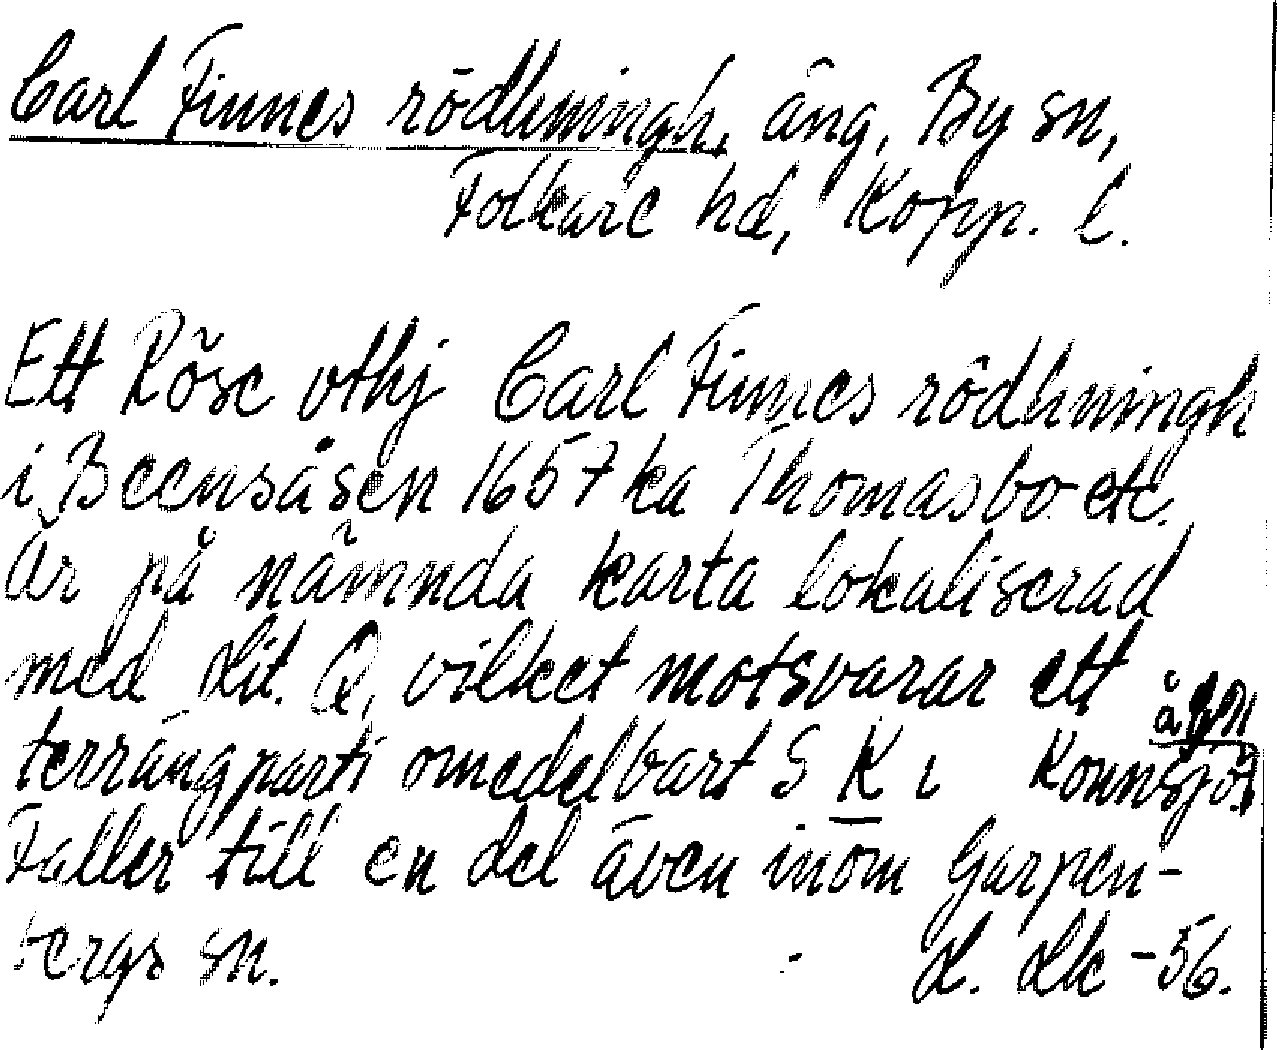 Carl Finnes rödhningh, äng, By sn,
Folkare hd, Kopp. l.
Ett Röse vthj Carl Finnes rödhningh
i Beensåsen 1657 ka Thomasbo etc.
Är på nämnda karta lokaliserad
med Lit. Q, vilket motsvarar ett
terrängparti omedelbart S K i Konnsjö.
Faller till en del även inom Garpen-
bergs sn. L. Lk -56.